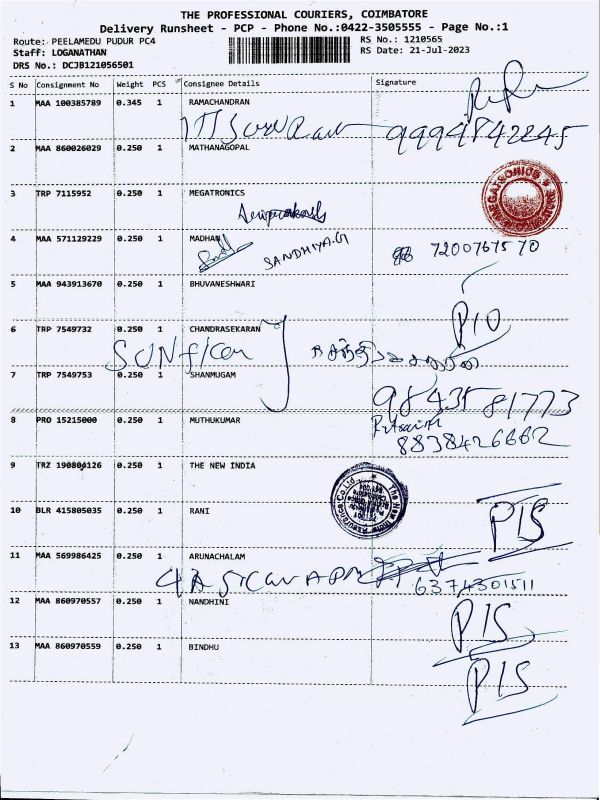 THE PROFESSIONAL COURIERS, COIMBATORE
Delivery Runsheet - PCP - Phone No.:0422-3505555 - Page No.:1
Route: PEELAMEDU PUDUR PC4
RS No.: 1210565
Staff: LOGANATHAN
RS Date: 21-Jul-2023
DRS No.: DCJB121056501
S No Consignment No Weight PCS Consignee Details Signature
1 MAA 100385789 0.345 1 RAMACHANDRAN
9994842245
2 MAA 860026029 0.250 1 MATHANAGOPAL
3 TRP 7115952 0.250 1 MEGATRONICS
MEGATRONICS
4 MAA 571129229 0.250 1 MADHAN
SANDHIYA.G 7200767570
5 MAA 943913670 0.250 1 BHUVANESHWARI
P10
6 TRP 7549732 0.250 1 CHANDRASEKARAN
SUNflaw
7 TRP 7549753 0.250 1 SHANMUGAM
9843581773
8 PRO 15215000 0.250 1 MUTHUKUMAR
8838426662
9 TRZ 190804126 0.250 1 THE NEW INDIA
The New India Assurance Co. Ltd.
10 BLR 415805035 0.250 1 RANI
P1S
11 MAA 569986425 0.250 1 ARUNACHALAM
6374301511
12 MAA 860970557 0.250 1 NANDHINI
P1S
13 MAA 860970559 0.250 1 BINDHU
P1S